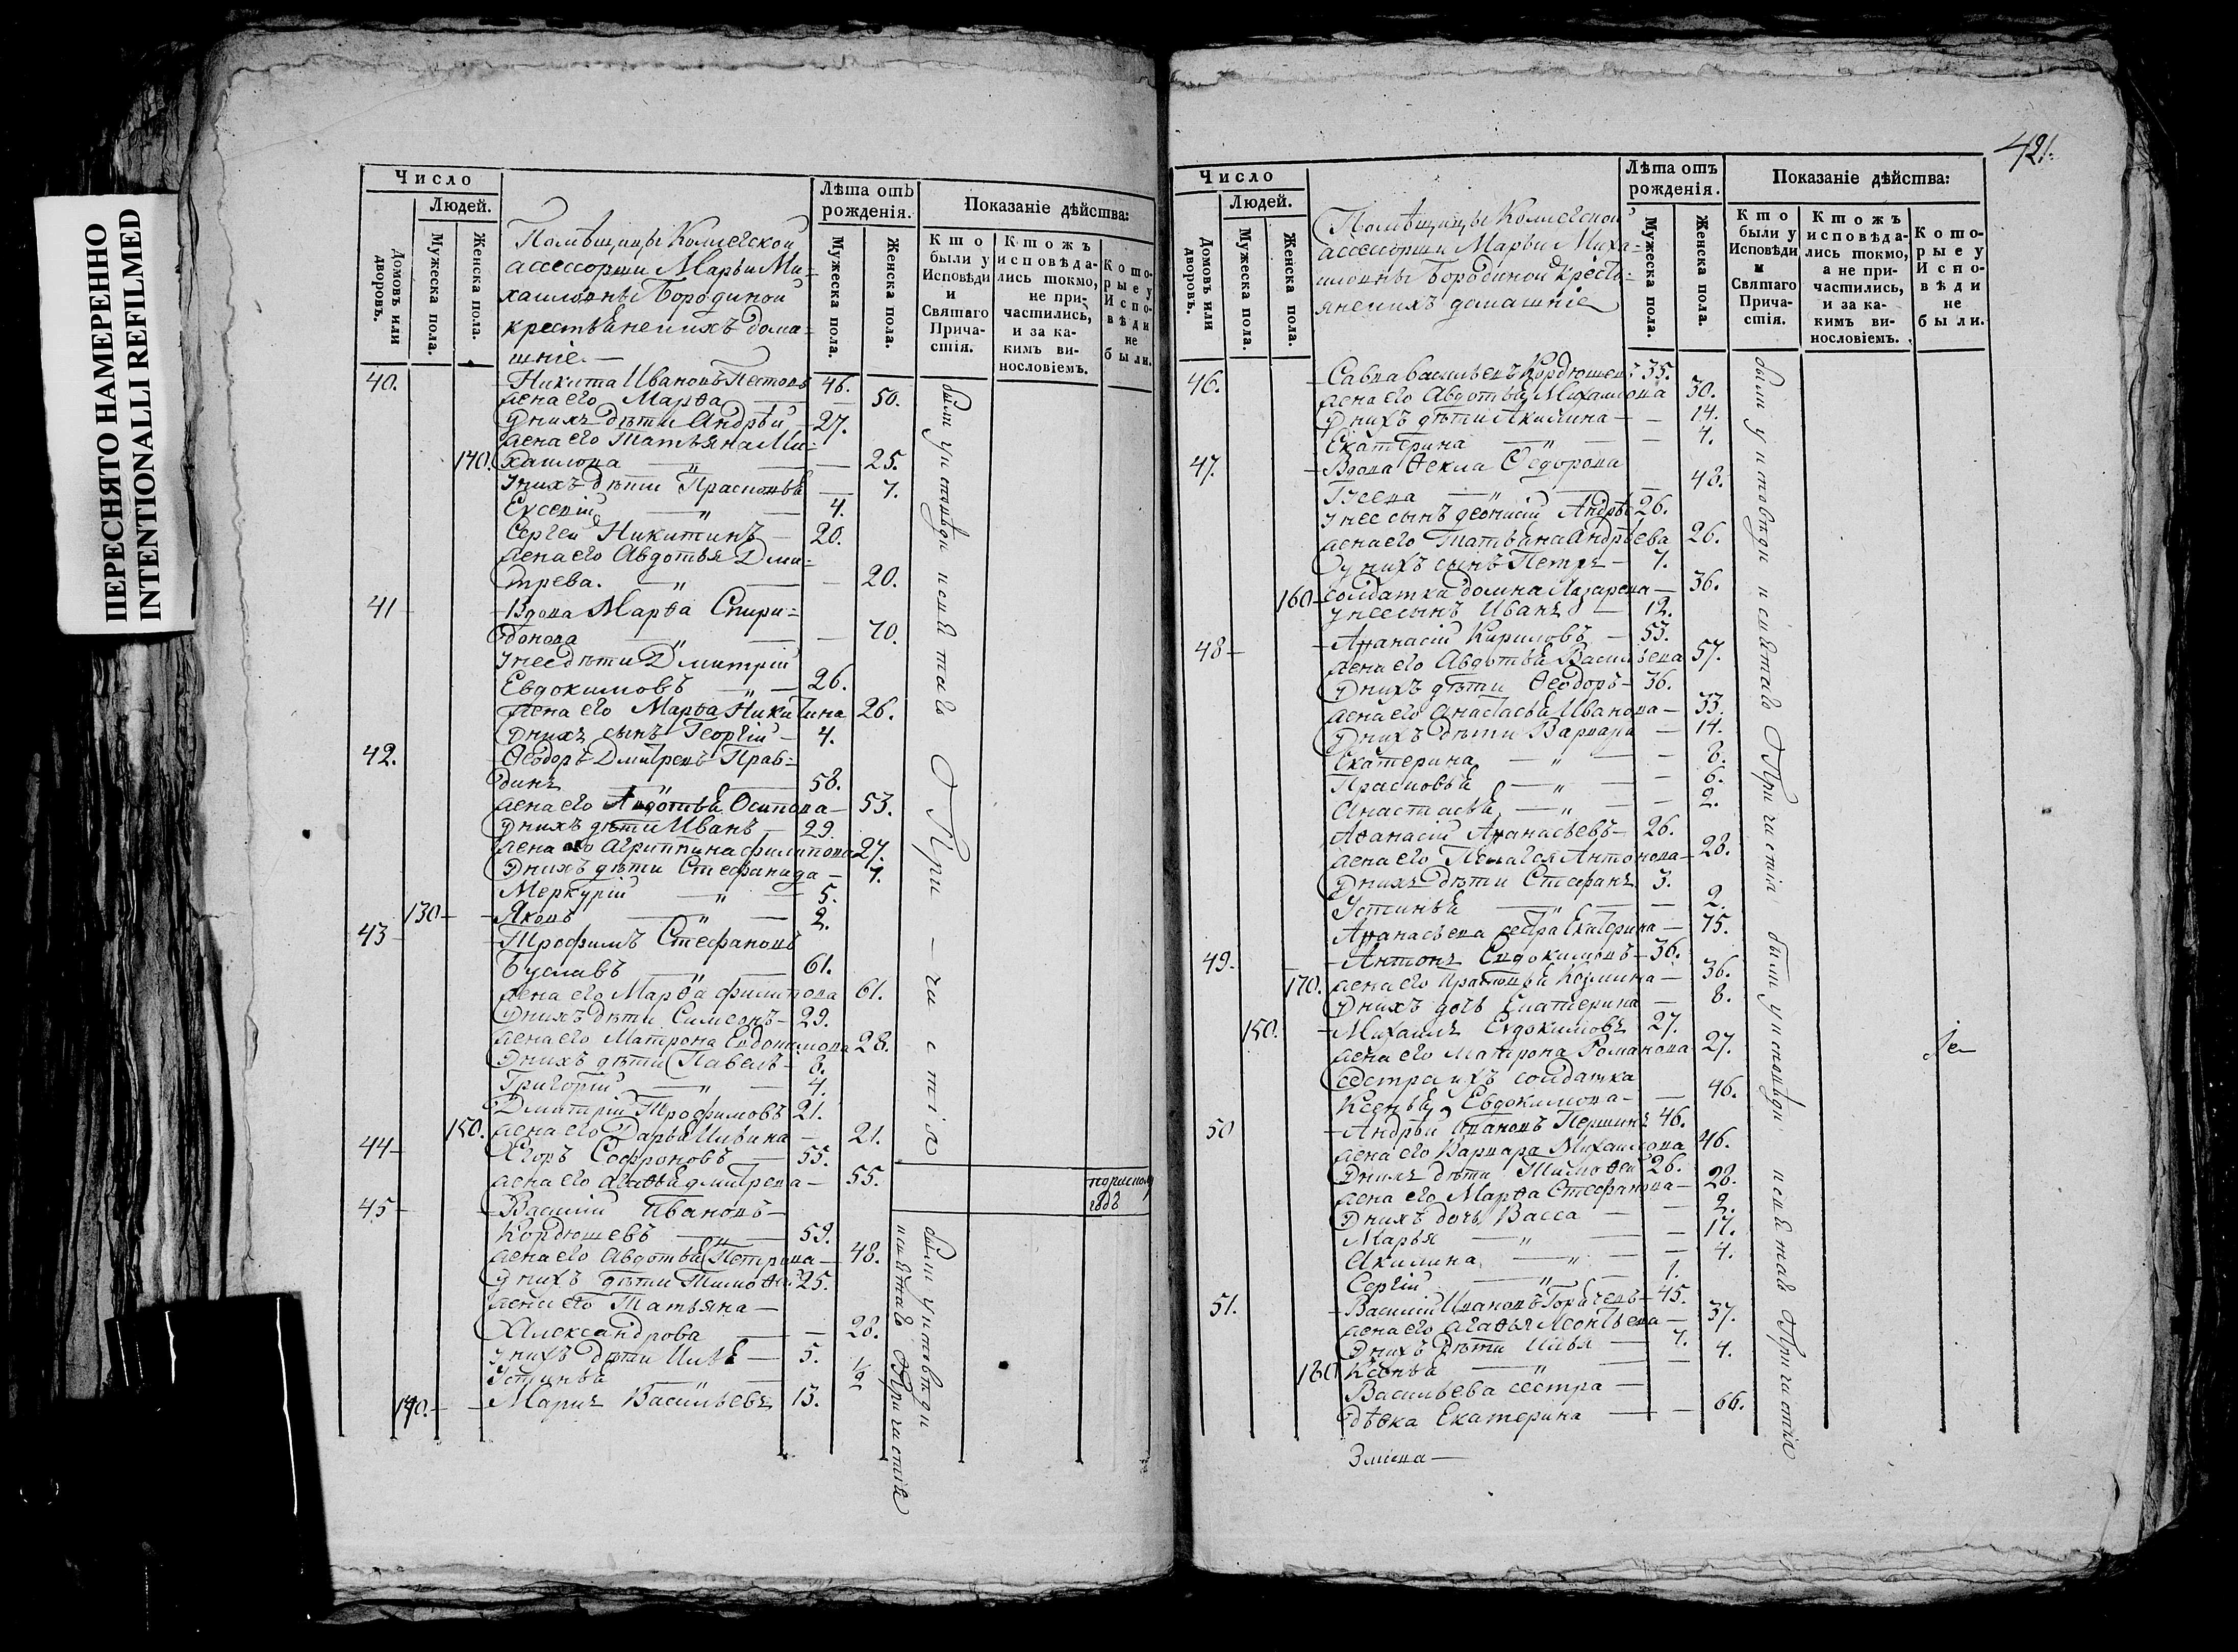 ПЕРЕСНЯТО НАМЕРЕННО
INTENTIONALLI REFILMED
Число
Людей.
Домовъ или дворовъ.
Мужеска пола.
Женска пола.
Помѣщицы Коллегской
ассесорши Марьи Ми-
хаиловны Бородиной
крестьяне и ихъ дома-
шніе
Лѣта отъ рожденія.
Мужеска пола.
Женска пола.
Показаніе дѣйства:
Кто были у Исповѣди и Святаго Прича-стія.
Ктожъ исповѣда-лись токмо, не при-частились, и за ка-кимъ ви-нословіемъ.
Кото-рые у Испо-вѣди не были.
40. Никита Ивановъ 46.
жена его Марѳа 50.
У нихъ дѣти Андрѣй 27.
жена его Татьяна Ми-
140. хаилова 25.
У нихъ дѣти Прасковья 7.
Евсевій 4.
Сергей Никитинъ 20.
жена его Авдотья Дми-
трева. 20.
41 Вдова Марѳа Спири-
донова 70.
У нее дѣти Дмитрій
Евдокимовъ 26.
жена его Марѳа Никитина 26.
У нихъ сынъ Георгій 4.
42. Ѳеодоръ Дмитревъ Прав-
динъ 58.
жена его Авдотья Осипова 53.
У нихъ дѣти Иванъ 29.
жена его Агриппина Филипова 27.
У нихъ дѣти Стефанида 7.
Меркурій 5.
130 Яковъ 2.
43 Трофимъ Стефановъ
Буславъ 61.
жена его Марѳа Филипова 61.
У нихъ дѣти Симеонъ 29.
жена его Матрона Евдокимова 28.
У нихъ дѣти Павелъ 8.
Григорій 4.
Дмитрій Трофимовъ 21.
150. жена его Дарья Ильина 21.
44 Егоръ Софроновъ 55.
жена его Агаѳья Дмитрева 55.
45 Василій Ивановъ
Кордюшевъ 59.
жена его Авдотья Петрова 48.
У нихъ дѣти Тимоѳей 25.
жена его Татьяна
Александрова 28.
У нихъ дѣти Илья 5.
Устинья 1/2
140. Василъевъ 13.
были у исповѣди и святаго Причастія
были у исповѣди и святаго Причастія
421.
Число
Людей.
Домовъ или дворовъ.
Мужеска пола.
Женска пола.
Помѣщицы Коллегской
ассессорши Марьи Миха-
иловны Бородиной кресть-
яне и ихъ домашніе
Лѣта отъ рожденія.
Мужеска пола.
Женска пола.
Показаніе дѣйства:
Кто были у Исповѣди и Святаго Прича-стія.
Ктожъ исповѣда-лись токмо, а не при-частились, и за ка-кимъ ви-нословіемъ.
Кото-рые у Испо-вѣди не были.
46. Савва Васильевъ Кордюшевъ 35.
жена его Авдотья Михаилова 30.
У нихъ дѣти Акилина 14.
Екатерина 4.
47. Вдова Ѳекла Ѳедорова
48.
У нее сынъ Деонисій Андрѣевъ 26.
жена его Татьяна Андрѣева 26.
У нихъ сынъ Петръ 7.
160 солдатка Домна Лазарева 36.
У нее сынъ Иванъ 12.
48 Аѳанасій Кириловъ 53.
жена его Авдотья Васильева 57.
У нихъ дѣти Ѳеодоръ 36.
жена его Анастасья Иванова 33.
У нихъ дѣти Варвара 14.
Екатерина 8.
Прасковья 6.
Анастасья 2.
Аѳанасій Аѳанасьевъ 26.
жена его Пелагея Антонова 28.
У нихъ дѣти Стефанъ 3.
Устинья 2.
Аѳанасьева сестра Екатерина 75.
49. Антонъ Евдокимовъ 36.
170. жена его Прасковья Козмина 36.
У нихъ дочь Екатерина 8.
150. Михаилъ Евдокимовъ 27.
жена его Матрона Романова 27.
Сестра ихъ солдатка
Ксенья Евдокимова 46.
50 Андрѣй Ивановъ Першинъ 46.
жена его Варвара Михаилова 46.
У нихъ дѣти Тимоѳей 26.
жена его Марѳа Стефанова 28.
У нихъ дочь Васса 2.
Марья 17.
Акилина 4.
Сергій 1.
51. Василій Ивановъ 45.
жена его Агаѳья Леонтьева 37.
У нихъ дѣти Илья 7.
180 Ксенья 4.
Васильева сестра
дѣвка Екатерина 66.
были у исповѣди и святаго Причастія
были у исповѣди и святаго Причастія